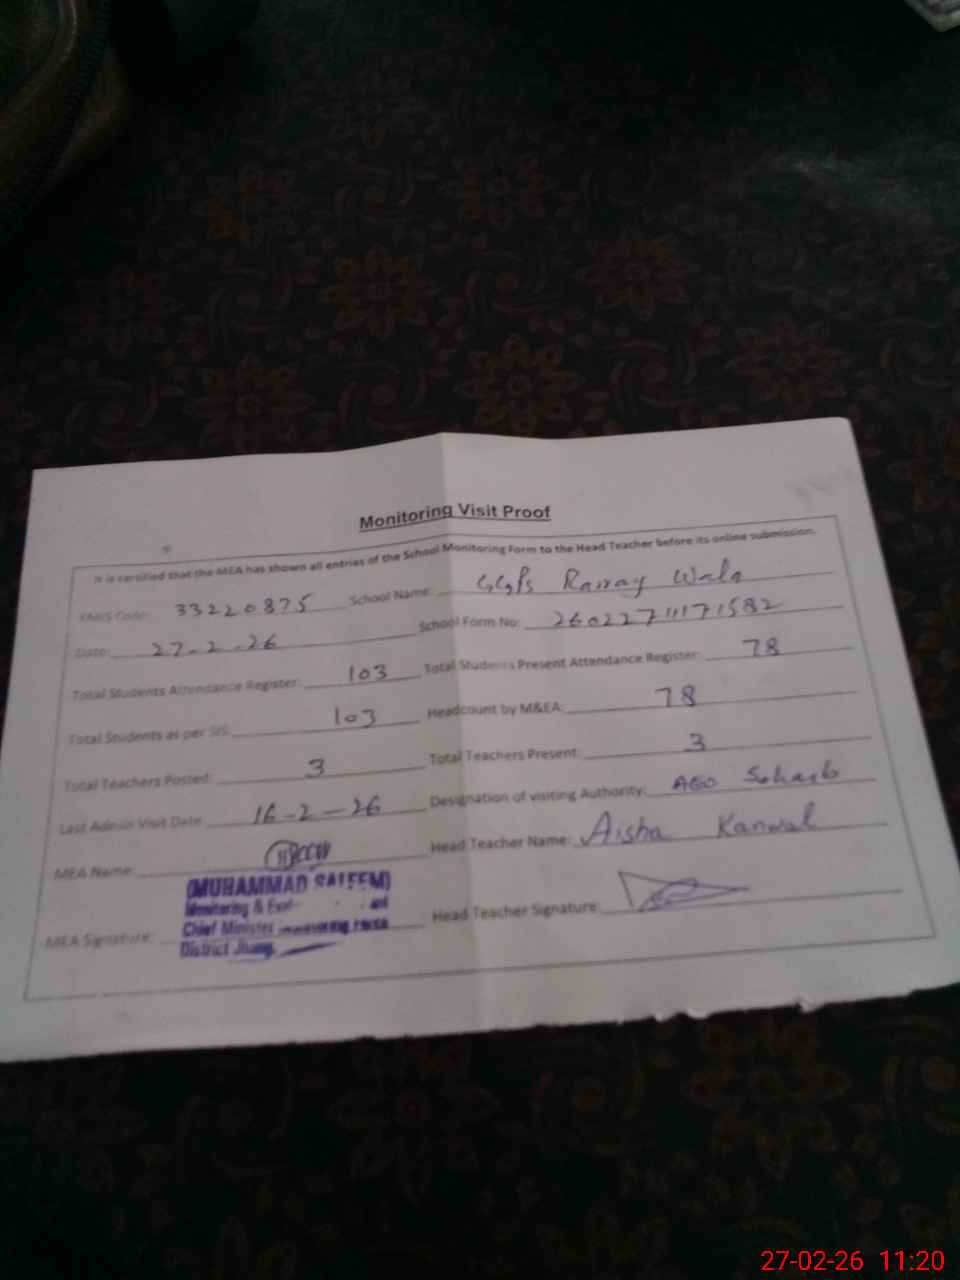 Monitoring Visit Proof
It is certified that the MEA has shown all entries of the School Monitoring Form to the Head Teacher before its online submission.
EMIS Code: 33220875 School Name: GGPS Wala
Date: 27-2-26 School Form No: 26022711171582
Total Students Attendance Register: 103 Total Students Present Attendance Register: 78
Total Students as per SIS: 103 Headcount by M&EA: 78
Total Teachers Posted: 3 Total Teachers Present: 3
Last Admin Visit Date 16-2-26 Designation of visiting Authority: AEO
MEA Name: Head Teacher Name: Aisha Kanwal
(MUHAMMAD SALEEM)
Monitoring &
Chief Minister
District Jhang.
MEA Signature: Head Teacher Signature:
27-02-26 11:20